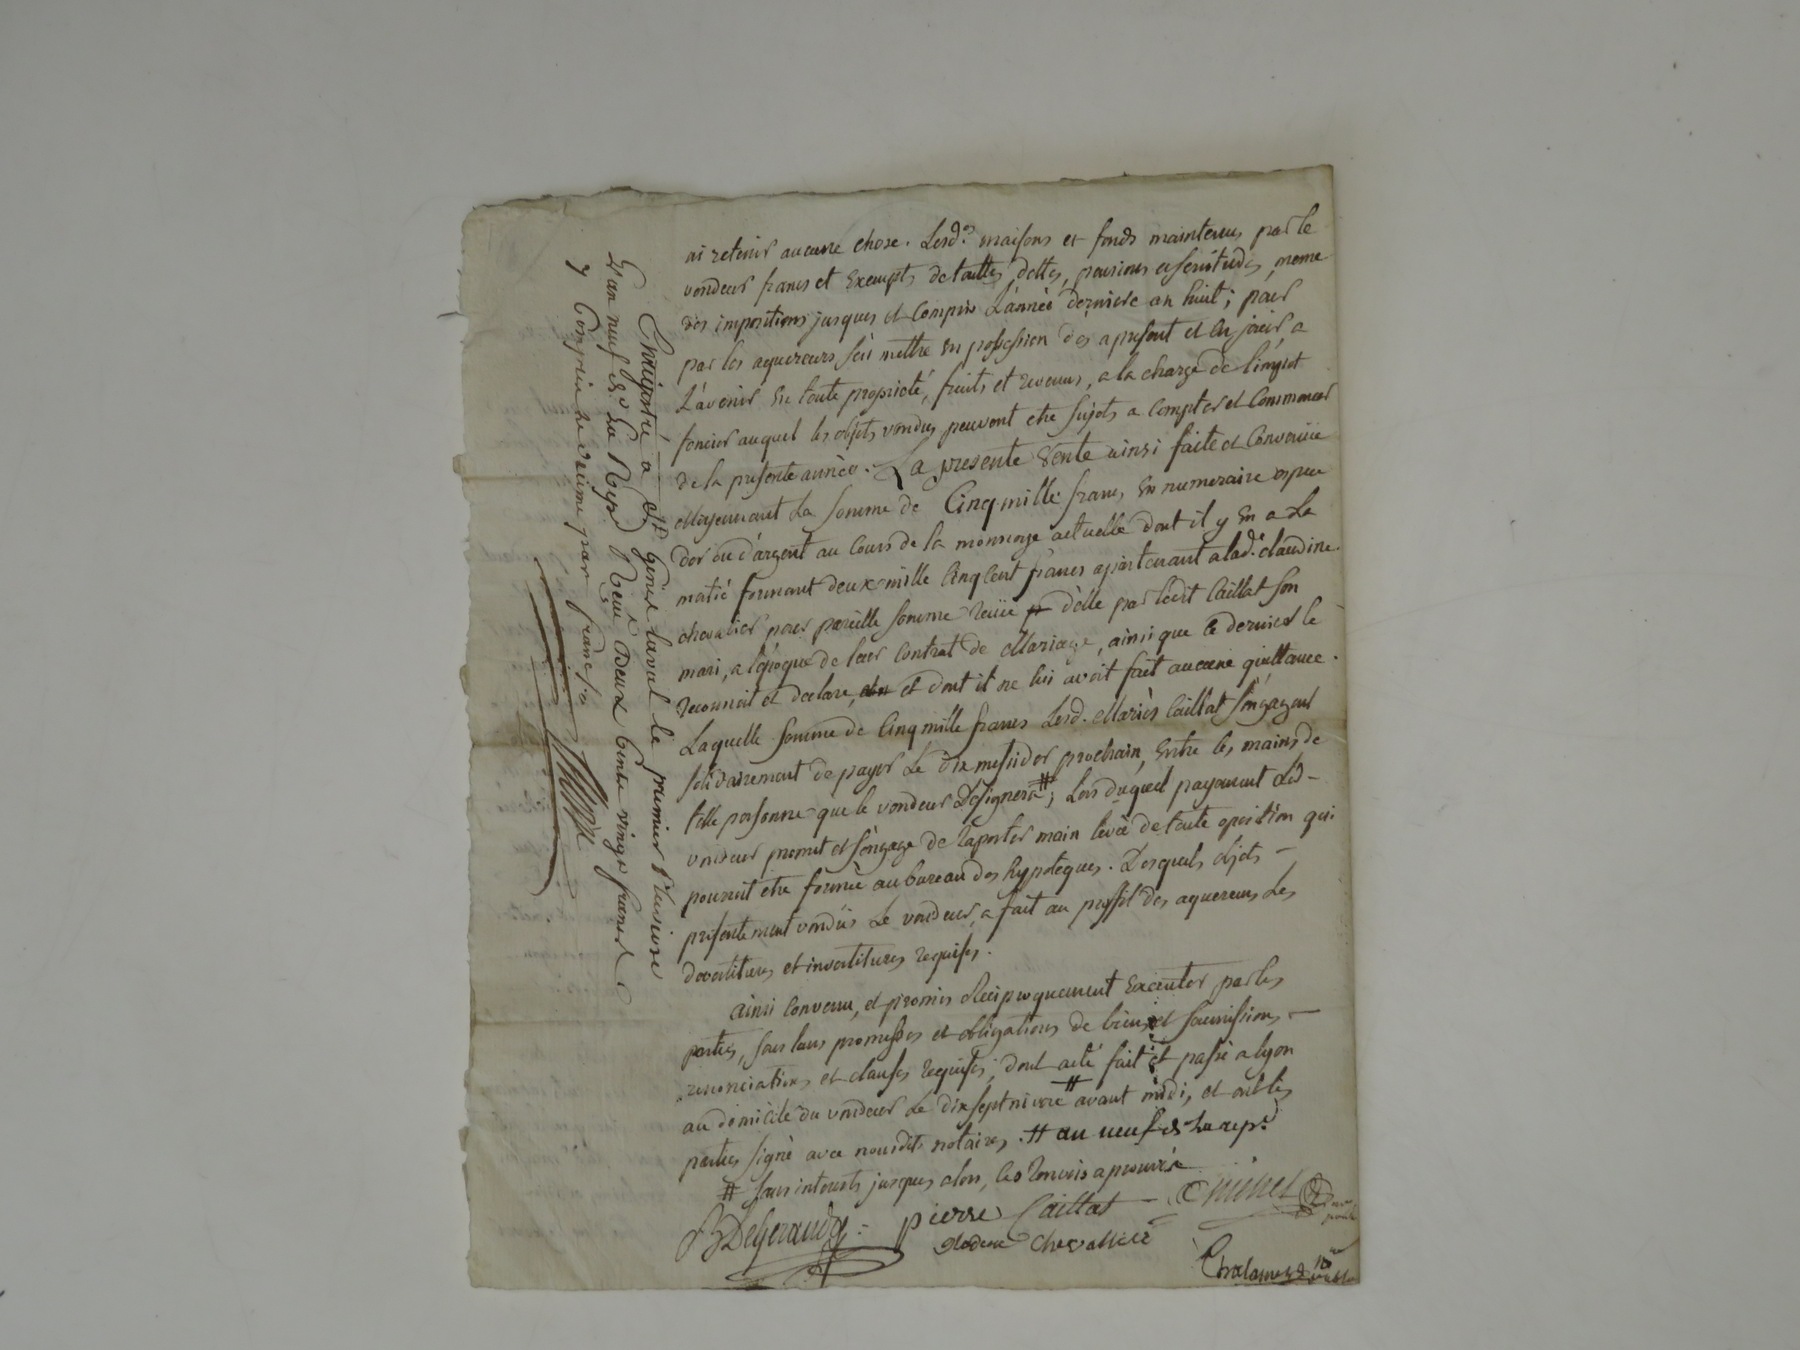 ni retenir aucune chose. Lesd.s maisons et fonds maintenus par le
vendeur francs et exempts de tailles, dettes, pensions et servitudes, meme
des impositions jusques et compris L'année derniere an huit; pour
par les aquereurs s'en mettre en possession des a present et en jouir a
L'avenir en toute propriété, fruits et revenus, a la charge de l'impot
foncier auquel les objets vendus peuvent etre sujets a compter et commencer
de la presente année. La presente Vente ainsi faite et Convenüe
Moyennant La somme de Cinq mille francs en numeraire
d'or ou d'argent au Cours de la monnoye actuelle dont il y en a La
moitié formant deux mille Cinq Cent francs apartenant a lad.e claudine
chevalier pour pareille somme reçüe d'elle par ledit Caillat son
mari, a l'époque de leur Contrat de Mariage, ainsi que Ce dernier le
reconnoit et declare, et dont il ne lui avoit fait aucune quittance.
Laquelle somme de Cinq mille francs Lesd. Mariés Caillat s'engagent
solidairement de payer Le dix messidor prochain, Entre les mains de
telle personne que le vendeur Désignera #; Lors duquel payement Led
vendeur promet et s'engage de raporter main levée de toute oposition qui
pouroit etre formée au bureau des hypoteques. Desquels objets
presentement vendus Le vendeur, a fait au proffit des aquereurs Les
devetitures et invetitures requises.
ainsi Convenu, et promis Reciproquement executer par les
parties, sous leurs promesses et obligations de biens et soumissions
renonciations et clauses requises; dont acte fait et passé a lyon
au domicile du vendeur Le dix sept nivose # avant midi, et ont les
parties signé avec nousdits notaires. # an neuf de La rep.e
# sans interets jusques alors, les renvois aprouvés
DeGerando pierre Caillat
Chevallier
Enregistré a St genis Laval le premier Pluviose
L'an neuf de La Rep.e Reçu deux Cents vingt francs
y Compris le decime par franc